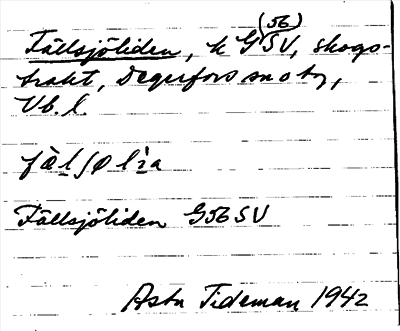 Fällsjöliden, k G(56)SV, skogs-
trakt, Degerfors sn o by,
Vb. l.
Fällsjöliden G56SV
Asta Tideman 1942